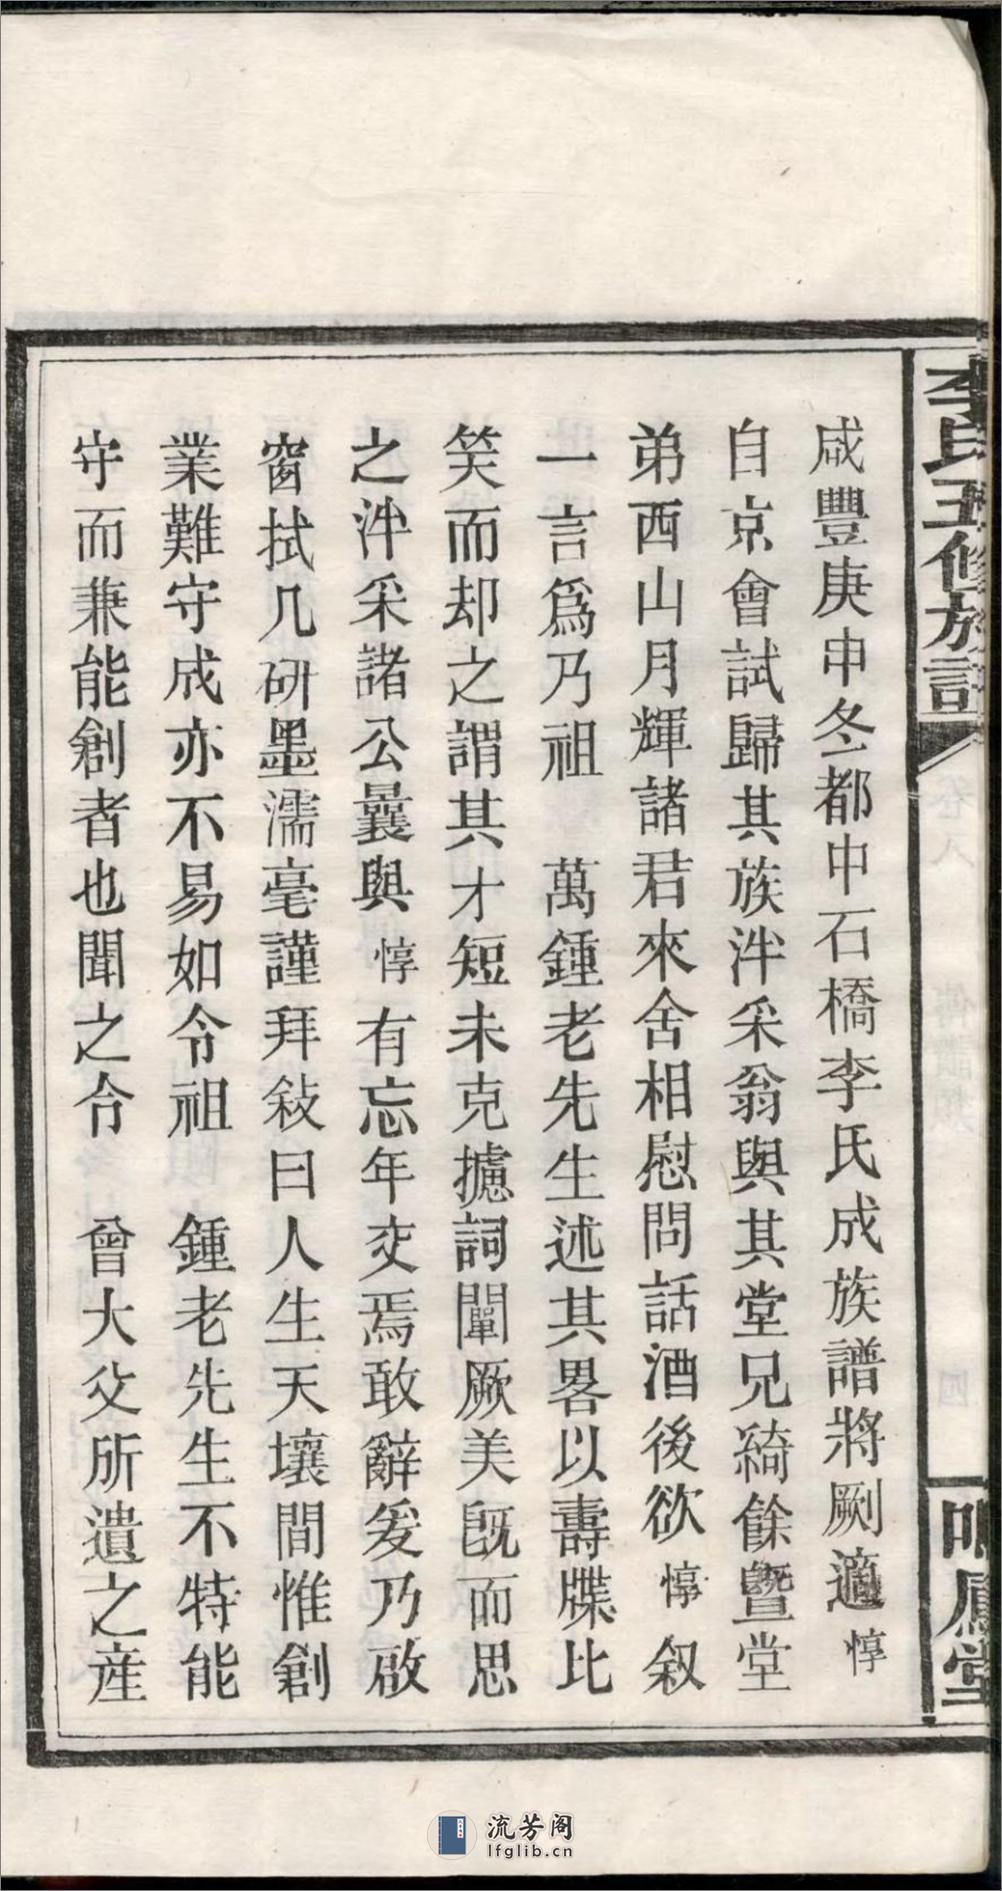 咸豐庚申冬都中石橋李氏成族譜將劂適惇
自京會試歸其族泮采翁與其堂兄綺餘暨堂
弟西山月輝諸君來舍相慰問話酒後欲惇叙
一言爲乃祖　萬鍾老先生述其畧以壽牒比
笑而却之謂其才短未克攄詞闡厥美旣而思
之泮采諸公曩與惇有忘年交焉敢辭爰乃啟
窗拭几研墨濡毫謹拜敍曰人生天壤間惟創
業難守成亦不易如令祖　鍾老先生不特能
守而兼能創者也聞之令　曾大父所遺之産
李氏五修族譜
鳴鳳堂
流芳阁
lfglib.cn